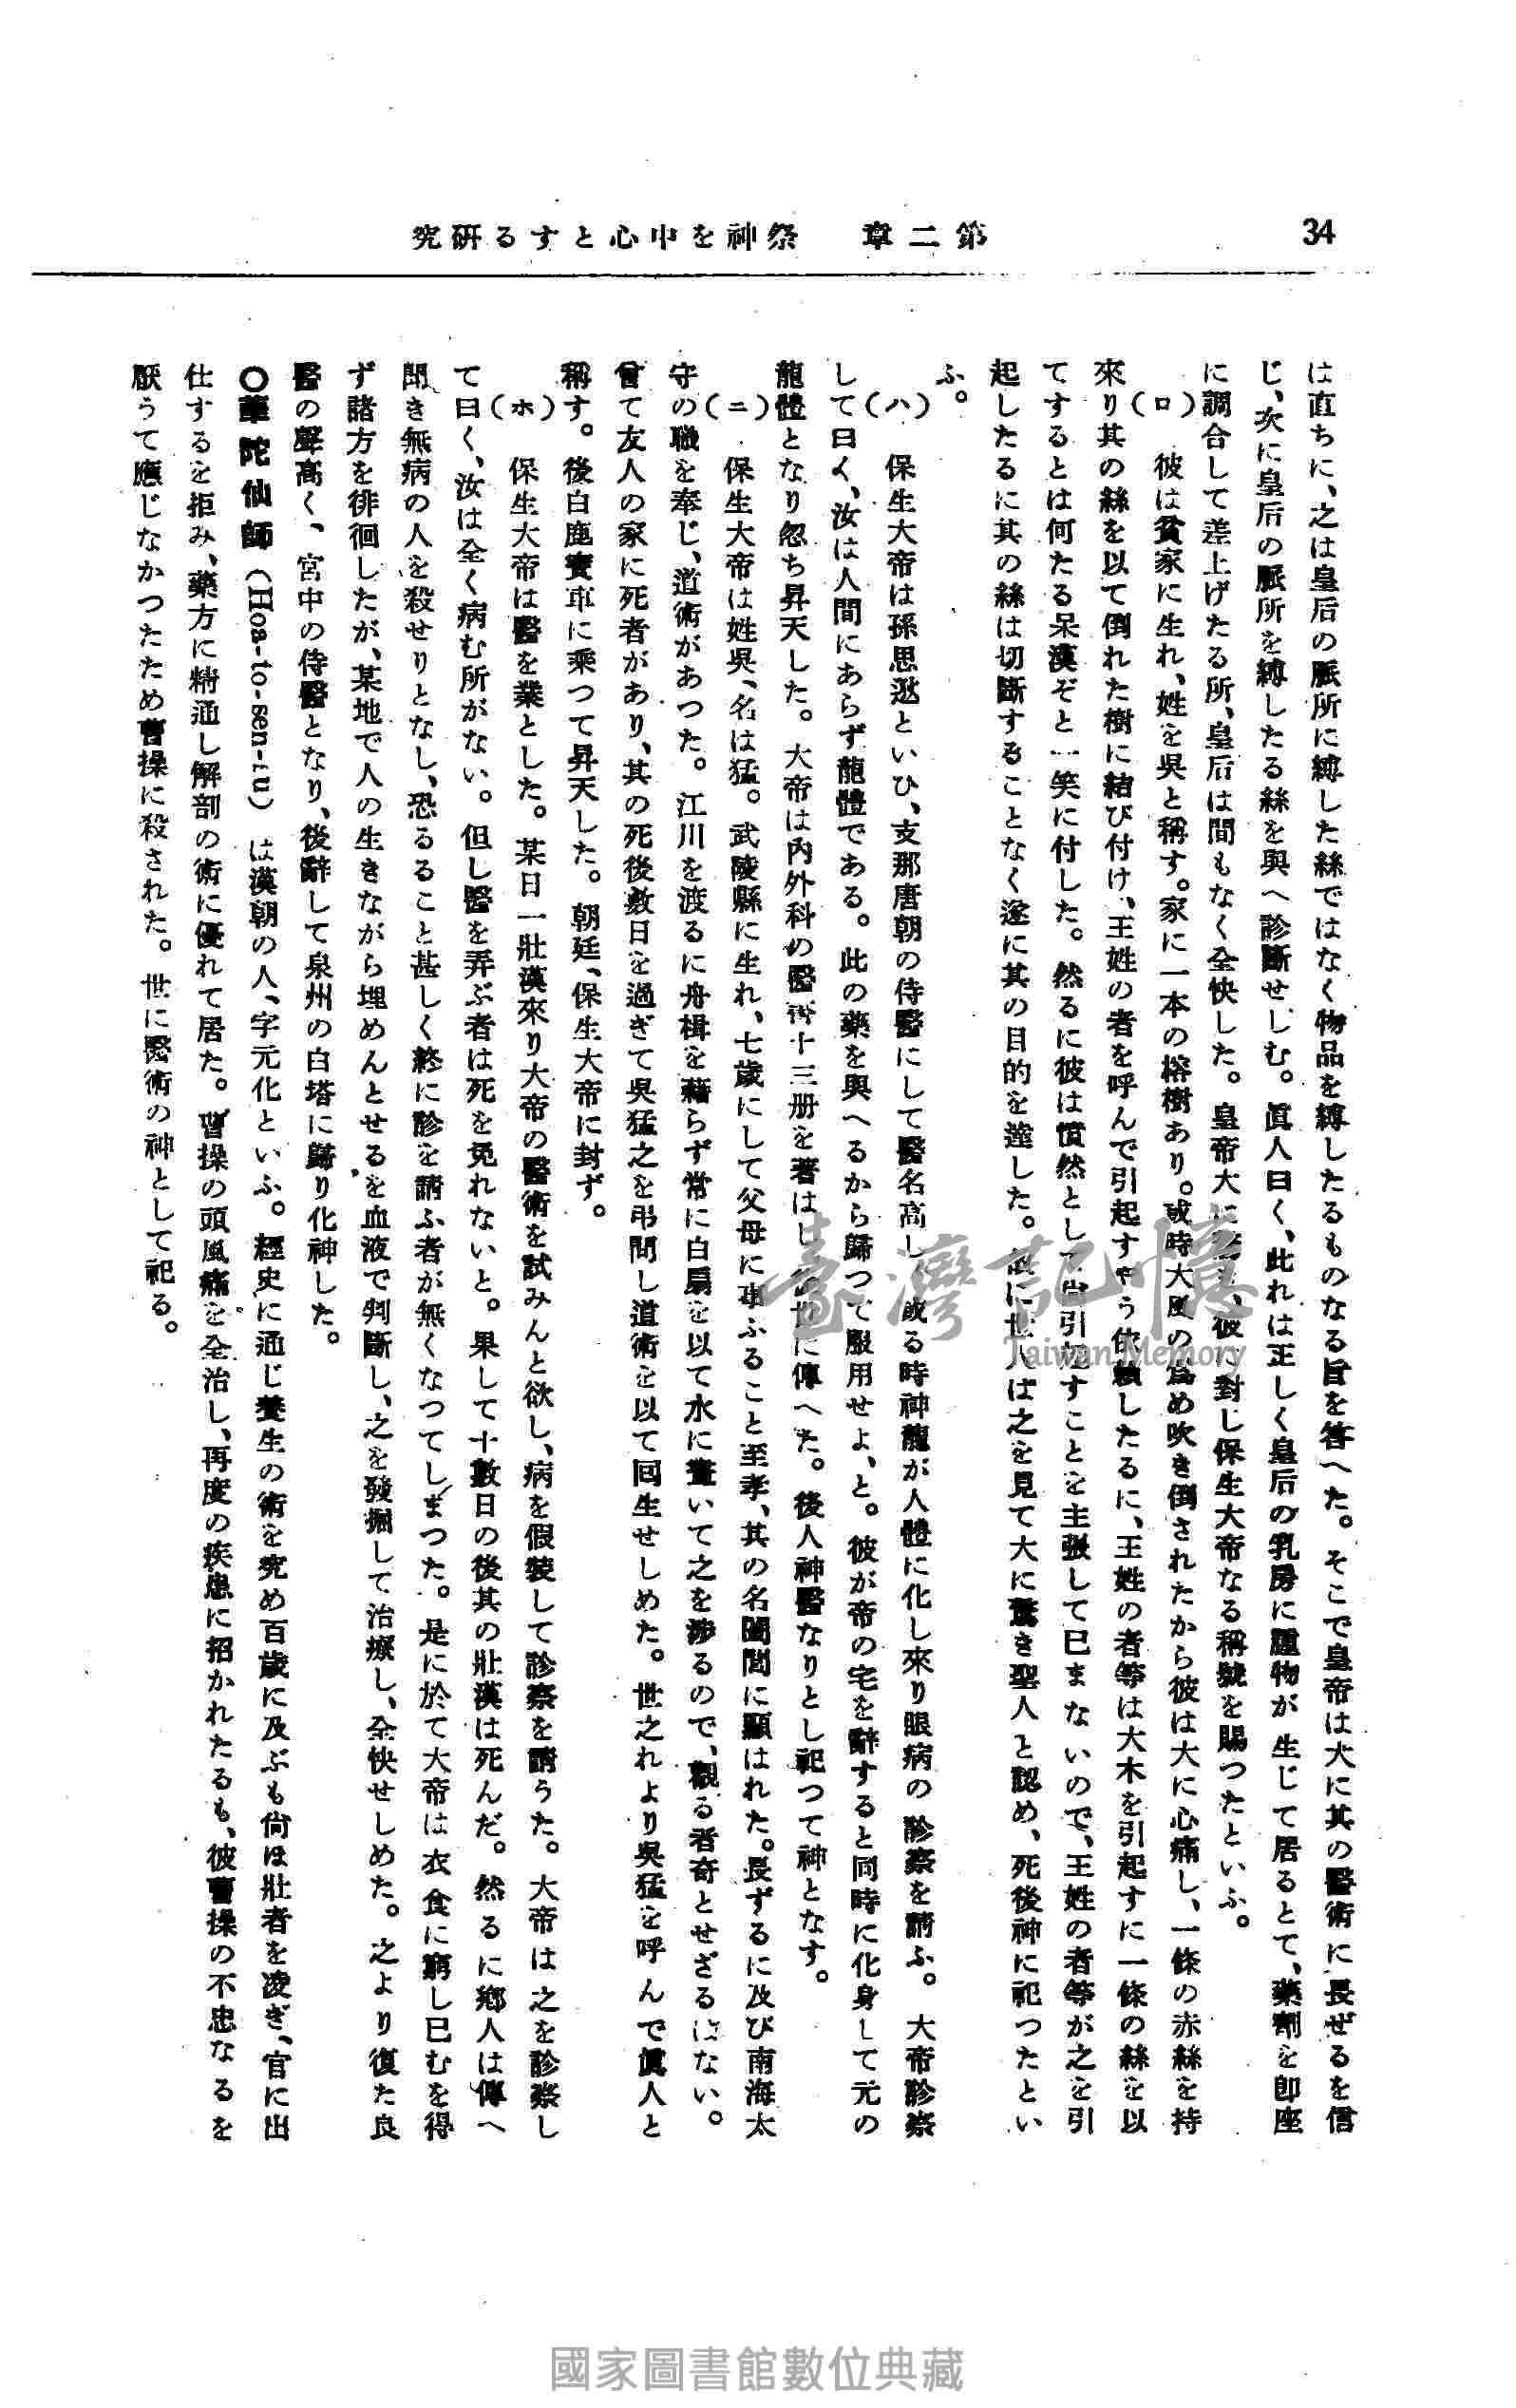 34
第二章　祭神を中心とする研究
は直ちに、之は皇后の脈所に縛した絲ではなく物品を縛したるものなる旨を答へた。そこで皇帝は大に其の醫術に長ぜるを信
じ、次に皇后の脈所を縛したる絲を與へ診斷せしむ。眞人曰く、此れは正しく皇后の乳房に腫物が生じて居るとて、藥劑を卽座
に調合して差上げたる所、皇后は間もなく全快した。皇帝大に、彼に對し保生大帝なる稱號を賜つたといふ。
（ロ）　彼は貧家に生れ、姓を吳と稱す。家に一本の榕樹あり。或時大風の爲め吹き倒されたから彼は大に心痛し、一條の赤絲を持
來り其の絲を以て倒れた樹に結び付け、王姓の者を呼んで引起すやう依賴したるに、王姓の者等は大木を引起すに一條の絲を以
てするとは何たる呆漢ぞと一笑に付した。然るに彼は憤然として引起すことを主張して已まないので、王姓の者等が之を引
起したるに其の絲は切斷することなく遂に其の目的を達した。故に世人は之を見て大に驚き聖人と認め、死後神に祀つたとい
ふ。
（ハ）　保生大帝は孫思邈といひ、支那唐朝の侍醫にして醫名高し、或る時神龍が人體に化し來り眼病の診察を請ふ。大帝診察
して曰く、汝は人間にあらず龍體である。此の藥を與へるから歸つて服用せよ、と。彼が帝の宅を辭すると同時に化身して元の
龍體となり忽ち昇天した。大帝は內外科の醫書十三册を著はし後世に傳へた。後人神醫なりとし祀つて神となす。
（ニ）　保生大帝は姓吳、名は猛。武陵縣に生れ、七歲にして父母に事ふること至孝、其の名閭閻に顯はれた。長ずるに及び南海太
守の職を奉じ、道術があつた。江川を渡るに舟楫を藉らず常に白扇を以て水に畫いて之を涉るので、觀る者奇とせざるはない。
曾て友人の家に死者があり、其の死後數日を過ぎて吳猛之を弔問し道術を以て囘生せしめた。世之れより吳猛を呼んで眞人と
稱す。後白鹿寶車に乘つて昇天した。朝廷、保生大帝に封ず。
（ホ）　保生大帝は醫を業とした。某日一壯漢來り大帝の醫術を試みんと欲し、病を假裝して診察を請うた。大帝は之を診察し
て曰く、汝は全く病む所がない。但し醫を弄ぶ者は死を免れないと。果して十數日の後其の壯漢は死んだ。然るに鄕人は傳へ
聞き無病の人を殺せりとなし、恐るること甚しく終に診を請ふ者が無くなつてしまつた。是に於て大帝は衣食に窮し已むを得
ず諸方を徘徊したが、某地で人の生きながら埋めんとせるを血液で判斷し、之を發掘して治療し、全快せしめた。之より復た良
醫の聲高く、宮中の侍醫となり、後辭して泉州の白塔に歸り化神した。
〇華陀仙師（Hoa-to-sen-su）は漢朝の人、字元化といふ。經史に通じ養生の術を究め百歲に及ぶも尙ほ壯者を凌ぎ、官に出
仕するを拒み、藥方に精通し解剖の術に優れて居た。曹操の頭風痛を全治し、再度の疾患に招かれたるも、彼曹操の不忠なるを
厭うて應じなかつたため曹操に殺された。世に醫術の神として祀る。
臺灣記憶
Taiwan Memory
國家圖書館數位典藏